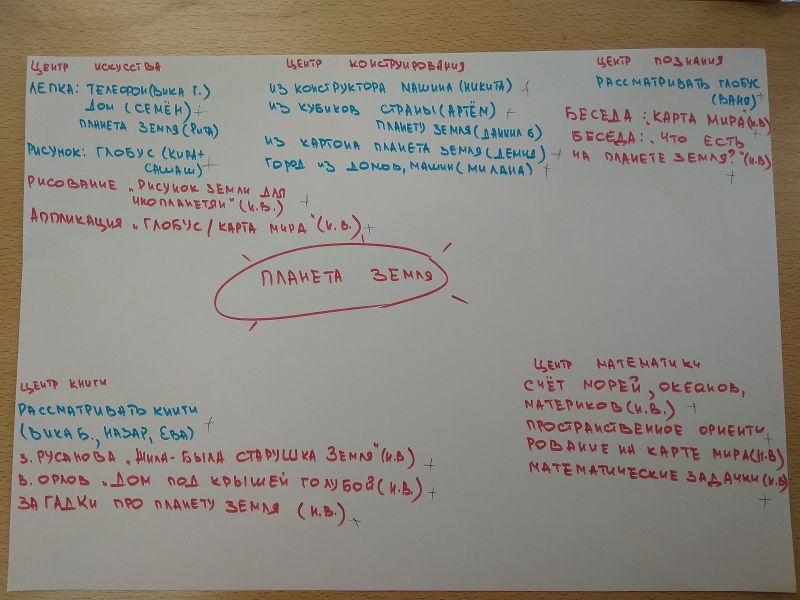 ЦЕНТР ИСКУССТВА
ЛЕПКА: ТЕЛЕФОН(ВИКА Г.)
ДОМ (СЕМЁН)
ПЛАНЕТА ЗЕМЛЯ(РИТА)
РИСУНОК: ГЛОБУС (КИРА+
САШАШ)
РИСОВАНИЕ „РИСУНОК ЗЕМЛИ ДЛЯ
ИНОПЛАНЕТЯН" (И.В.)
АППЛИКАЦИЯ „ГЛОБУС / КАРТА МИРА"(И.В.)
ЦЕНТР КОНСТРУИРОВАНИЯ
ИЗ КОНСТРУКТОРА МАШИНА (НИКИТА)
ИЗ КУБИКОВ СТРАНЫ(АРТЁМ)
ПЛАНЕТУ ЗЕМЛЯ(ДАНИИЛ Б)
ИЗ КАРТОНА ПЛАНЕТА ЗЕМЛЯ(ДЕМИД)
ГОРОД ИЗ ДОМОВ, МАШИН(МИЛАНА)
ЦЕНТР ПОЗНАНИЯ
РАССМАТРИВАТЬ ГЛОБУС
(ВАНЯ)
БЕСЕДА: „КАРТА МИРА"(И.В)
БЕСЕДА: „ЧТО ЕСТЬ
НА ПЛАНЕТЕ ЗЕМЛЯ?"(И.В)
ПЛАНЕТА ЗЕМЛЯ
ЦЕНТР КНИГИ
РАССМАТРИВАТЬ КНИГИ
(ВИКА Б., НАЗАР, ЕВА)
З. РУСАНОВА „ЖИЛА-БЫЛА СТАРУШКА ЗЕМЛЯ"(И.В)
В. ОРЛОВ „ДОМ ПОД КРЫШЕЙ ГОЛУБОЙ(И.В.)
ЗАГАДКИ ПРО ПЛАНЕТУ ЗЕМЛЯ (И.В.)
ЦЕНТР МАТЕМАТИКИ
СЧЁТ МОРЕЙ, ОКЕАНОВ,
МАТЕРИКОВ(И.В.)
ПРОСТРАНСТВЕННОЕ ОРИЕНТИ
РОВАНИЕ НА КАРТЕ МИРА(И.В)
МАТЕМАТИЧЕСКИЕ ЗАДАЧКИ(И.В)